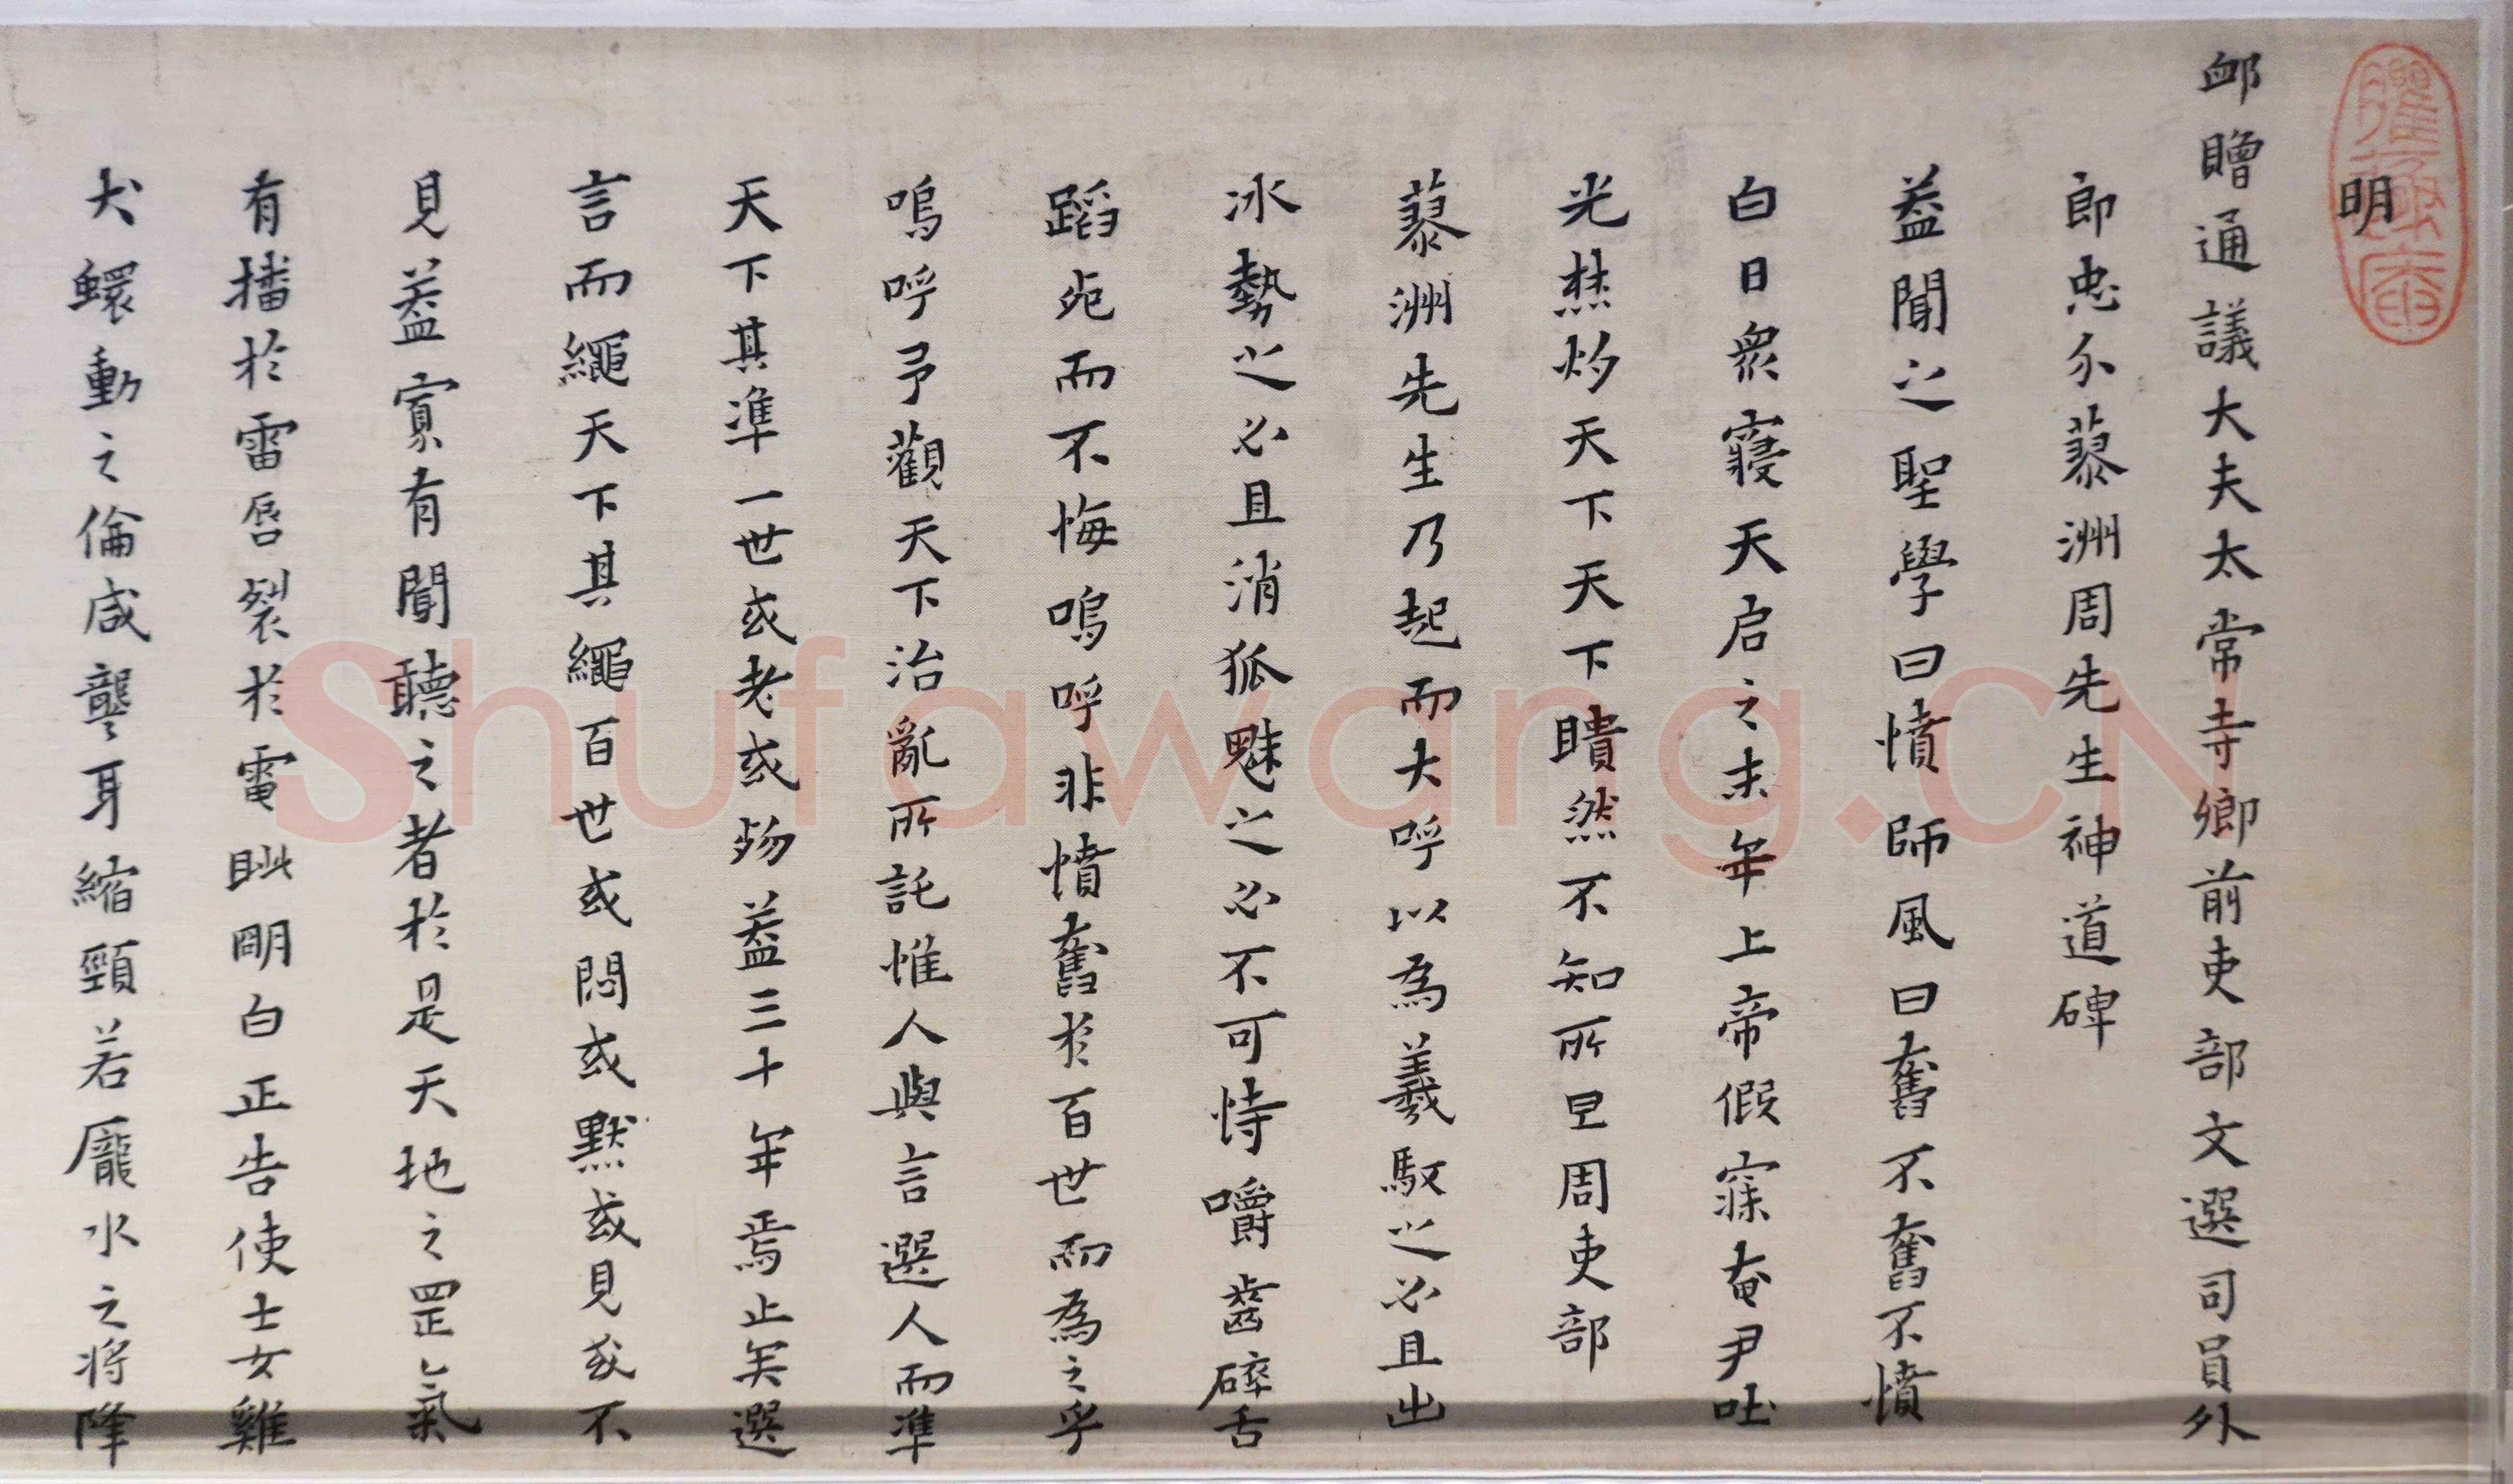 明
卹贈通議大夫太常寺卿前吏部文選司員外
郎忠介蓼洲周先生神道碑
葢聞之聖學曰憤師風曰奮不奮不憤
白日衆寢天启之末年上帝假寐奄尹吐
光焚灼天下天下瞶然不知所㠯周吏部
蓼洲先生乃起而大呼以為羲馭之必且出
冰勢之必且消狐魅之必不可恃嚼齒碎舌
蹈死而不悔嗚呼非憤奮於百世而為之乎
嗚呼予觀天下治亂所託惟人與言選人而準
天下其準一世或老或歾葢三十年焉止矣選
言而繩天下其繩百世或悶或默或見或不
見葢寘有聞聽之者於是天地之罡氣
有播於雷唇裂於電眦朙白正告使士女雞
犬蠉動之倫咸聾耳縮頸若龎水之将降
Shufawang.CN